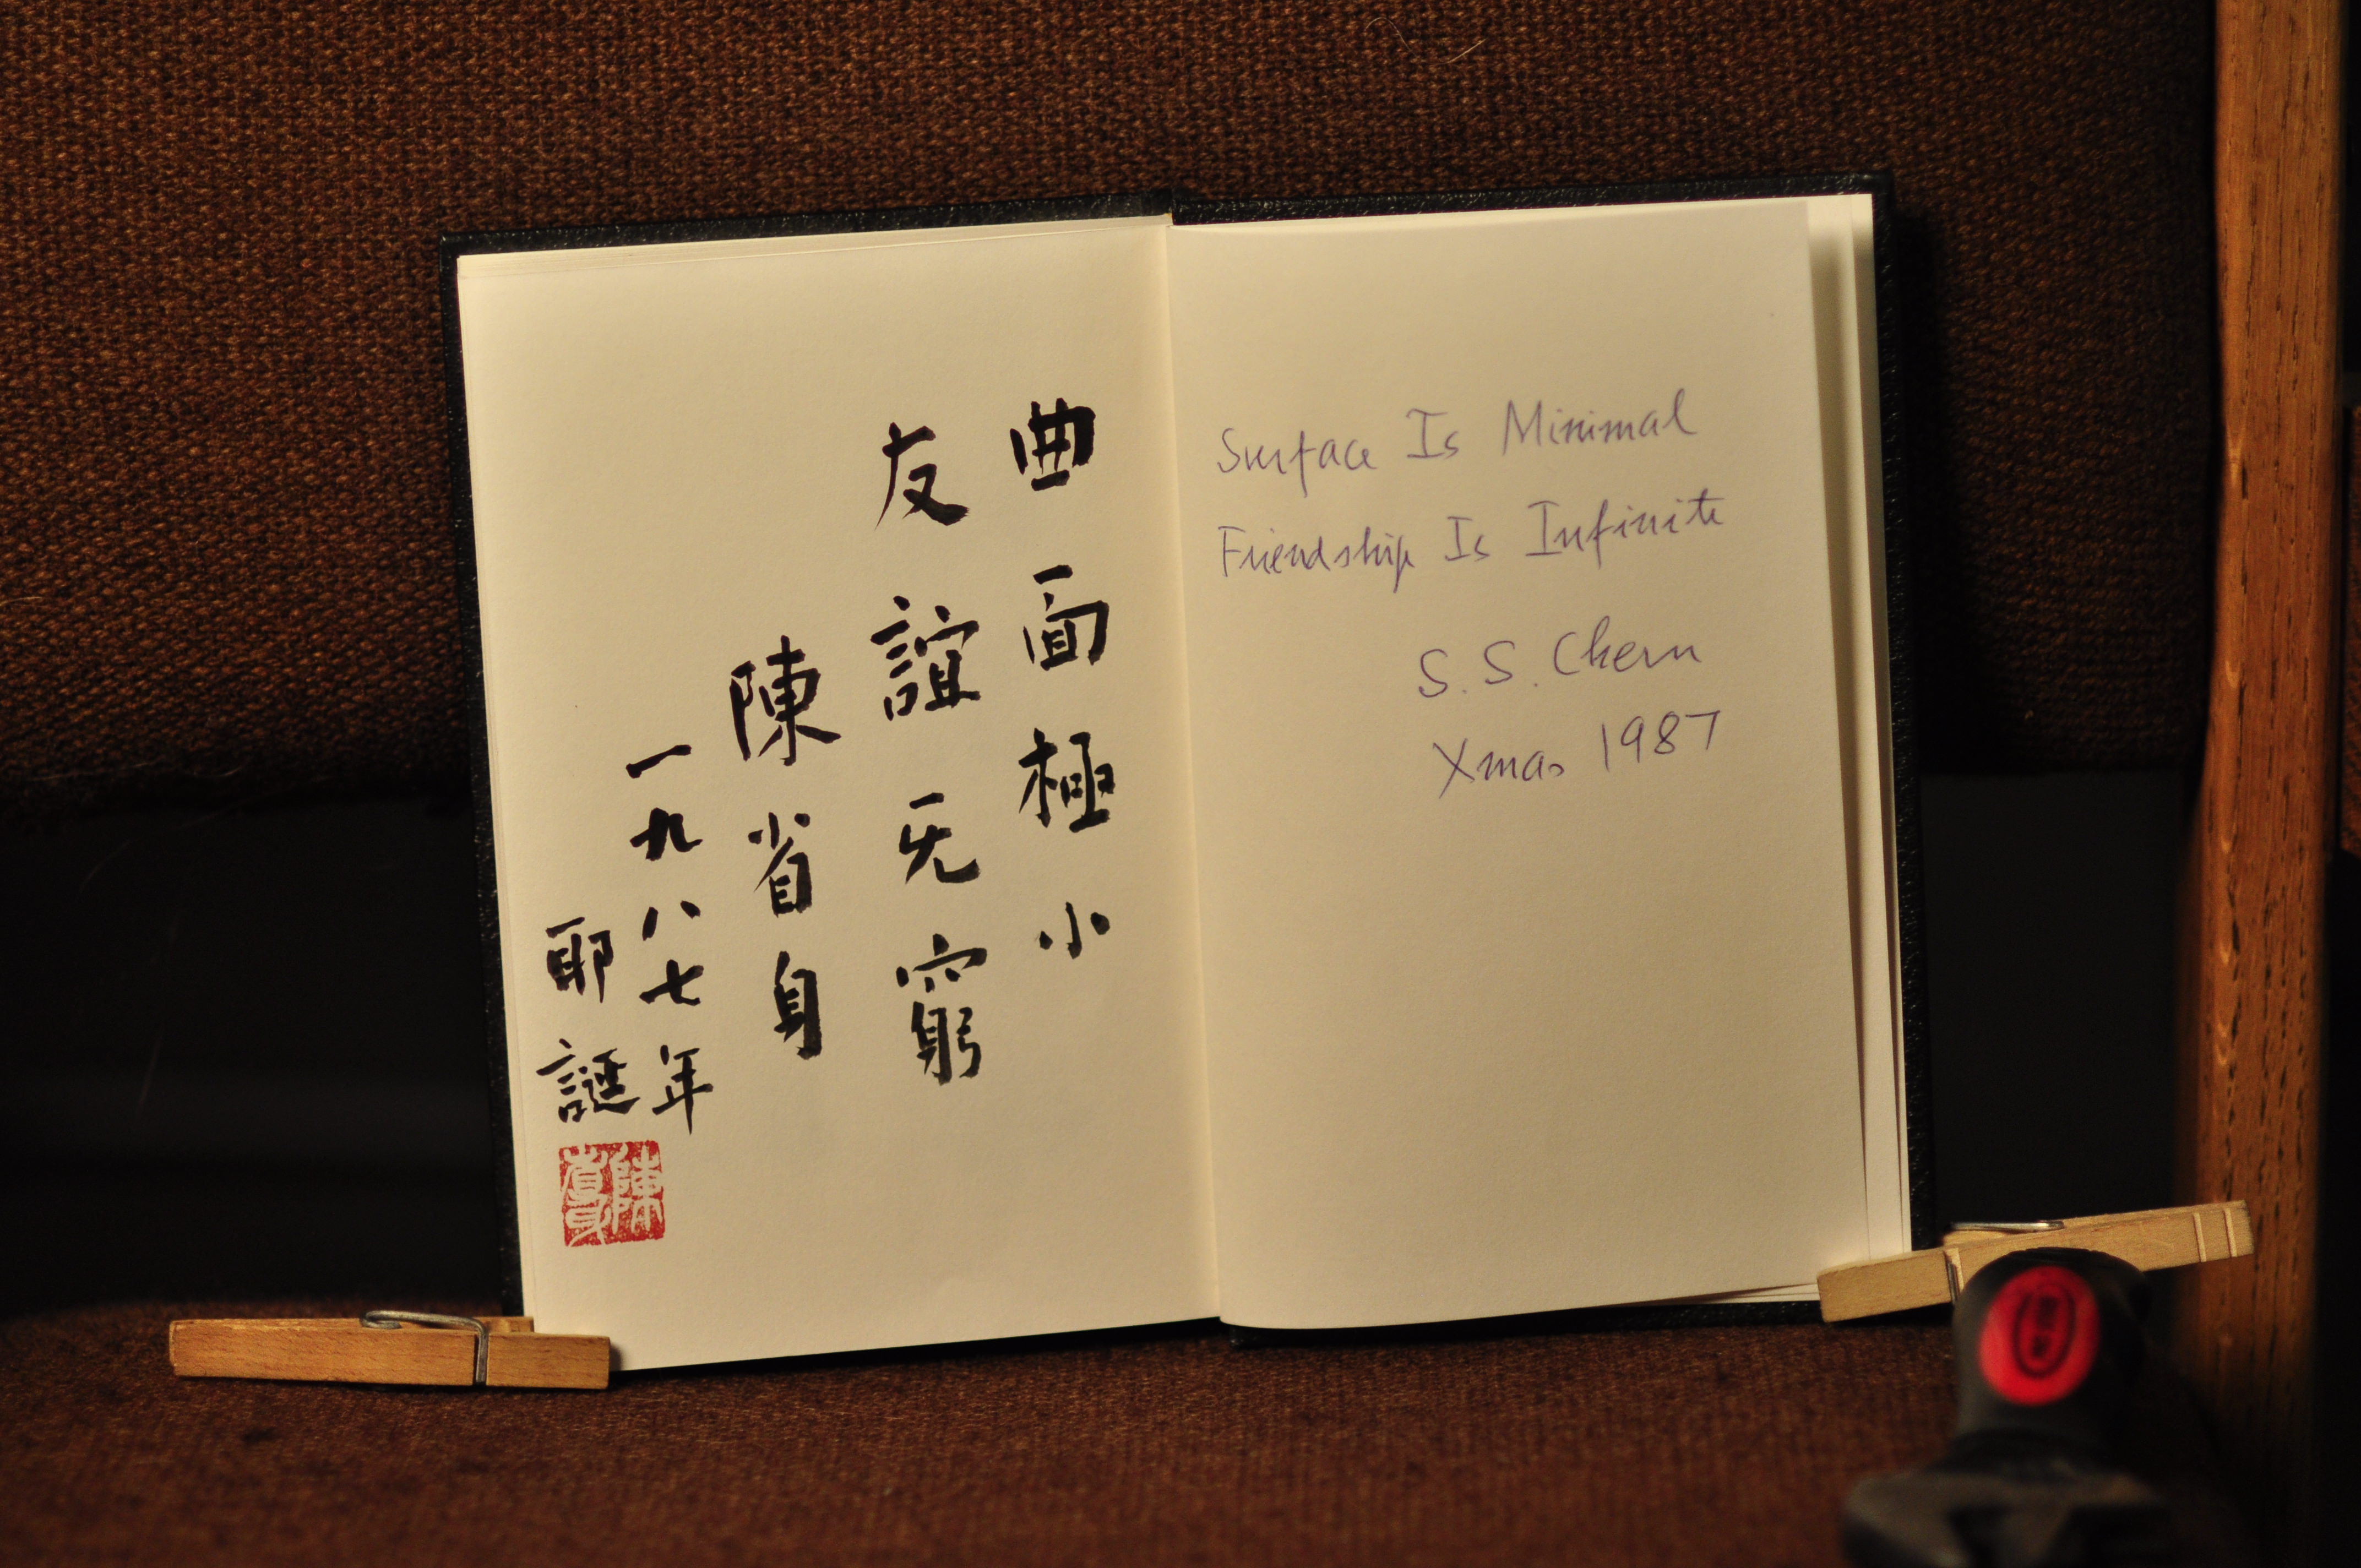 曲面極小
友誼无窮
陳省身
一九八七年
耶誕
陳省身
Surface Is Minimal
Friendship Is Infinite
S. S. Chern
Xmas 1987